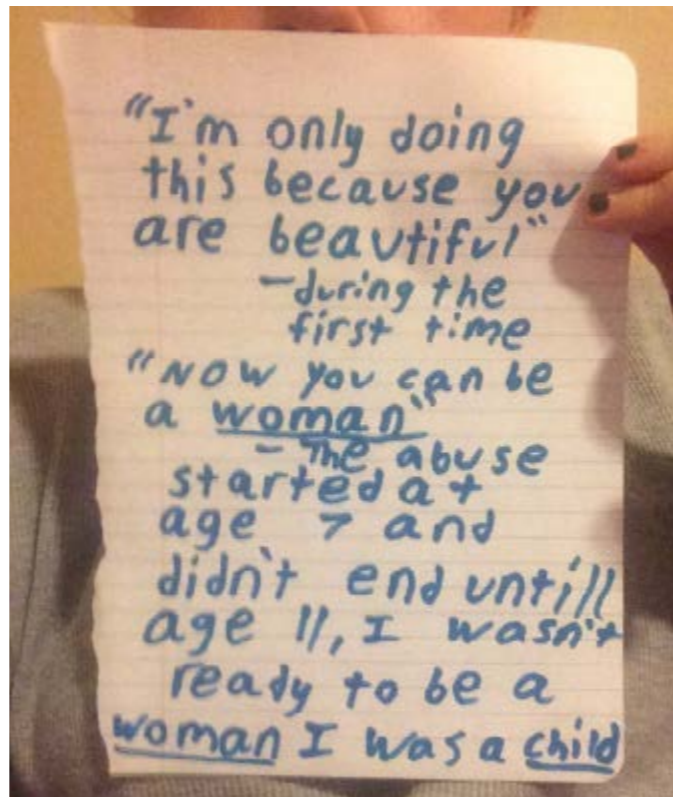 "I'm only doing
this because you
are beautiful"
-during the
first time
"NOW you can be
a woman"
- The abuse
started at
age 7 and
didn't end untill
age 11, I wasn't
ready to be a
woman I was a child